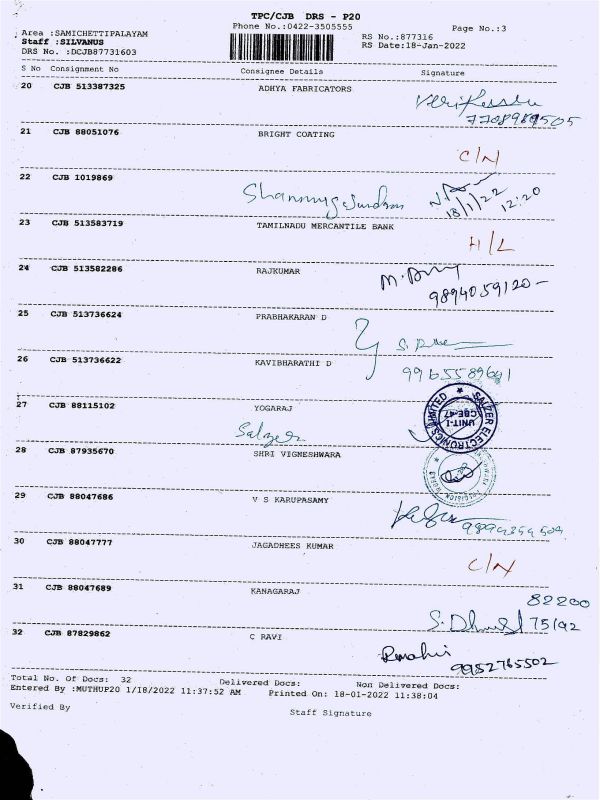 TPC/CJB DRS - P20
Phone No.:0422-3505555
Page No.:3
Area :SAMICHETTIPALAYAM
Staff :SILVANUS
DRS No. :DCJB87731603
RS No.:877316
RS Date:18-Jan-2022
S No Consignment No Consignee Details Signature
20 CJB 513387325 ADHYA FABRICATORS
21 CJB 88051076 BRIGHT COATING
C/N
22 CJB 1019869
18/1/22 12:20
23 CJB 513583719 TAMILNADU MERCANTILE BANK
H/L
24 CJB 513582286 RAJKUMAR
9894059120-
25 CJB 513736624 PRABHAKARAN D
26 CJB 513736622 KAVIBHARATHI D
27 CJB 88115102 YOGARAJ
Salzer
SALZER ELECTRONICS LIMITED
UNIT-I
CBE-47
28 CJB 87935670 SHRI VIGNESHWARA
29 CJB 88047686 V S KARUPASAMY
30 CJB 88047777 JAGADHEES KUMAR
C/N
31 CJB 88047689 KANAGARAJ
82200
75192
32 CJB 87829862 C RAVI
9952765502
Total No. Of Docs: 32 Delivered Docs: Non Delivered Docs:
Entered By :MUTHUP20 1/18/2022 11:37:52 AM Printed On: 18-01-2022 11:38:04
Verified By
Staff Signature